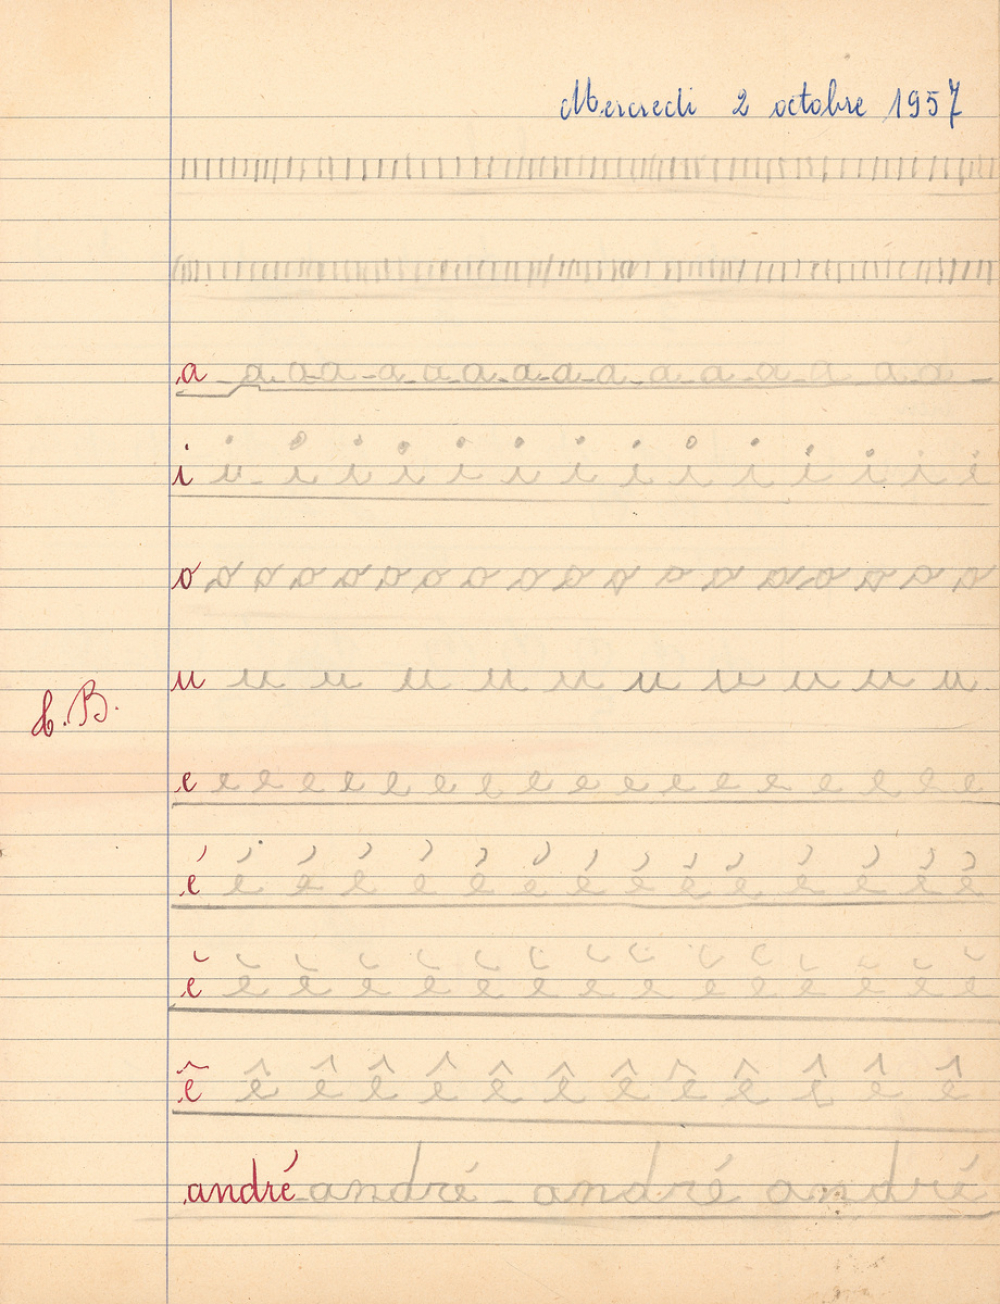 Mercredi 2 octobre 1957
a a a a a a a a a a a a a a a a
i i i i i i i i i i i i i i i
o o o o o o o o o o o o o o o o o o
u u u u u u u u u u u
B.
e e e e e e e e e e e e e e e e e e
é é é é é é é é é é é é é é é
è è è è è è è è è è è è è è è
ê ê ê ê ê ê ê ê ê ê ê ê ê
andré andré andré andré